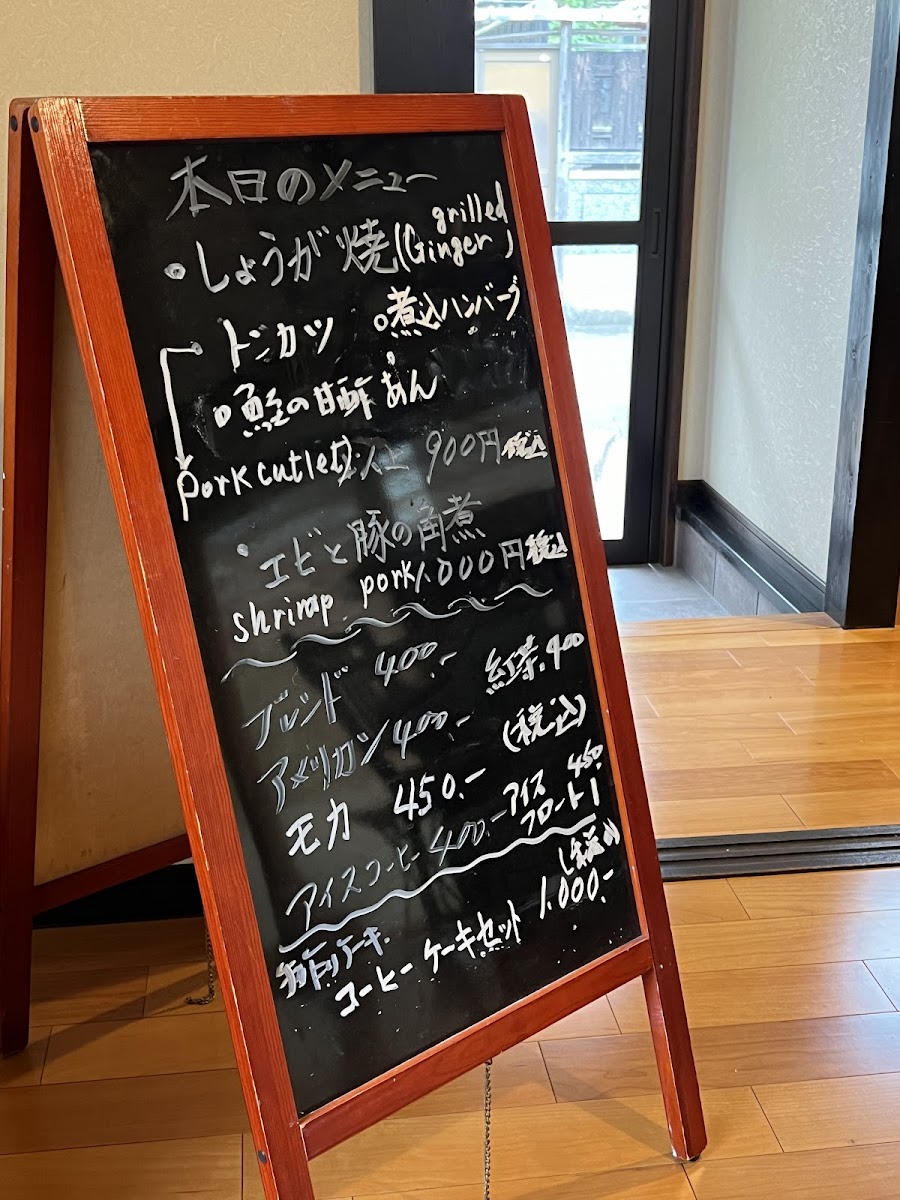 本日のメニュー
・しょうが焼(grilled Ginger)
トンカツ ○煮込ハンバーグ
○鮭の甘酢あん
pork cutlet 以上 900円 税込
・エビと豚の角煮
shrimp pork 1.000円 税込
ブレンド 400.- 紅茶.400
アメリカン 400.- (税込)
モカ 450.-
アイスコーヒー 400.- アイスフロート 450
(税込)
手作りケーキ
コーヒーケーキセット 1.000.-